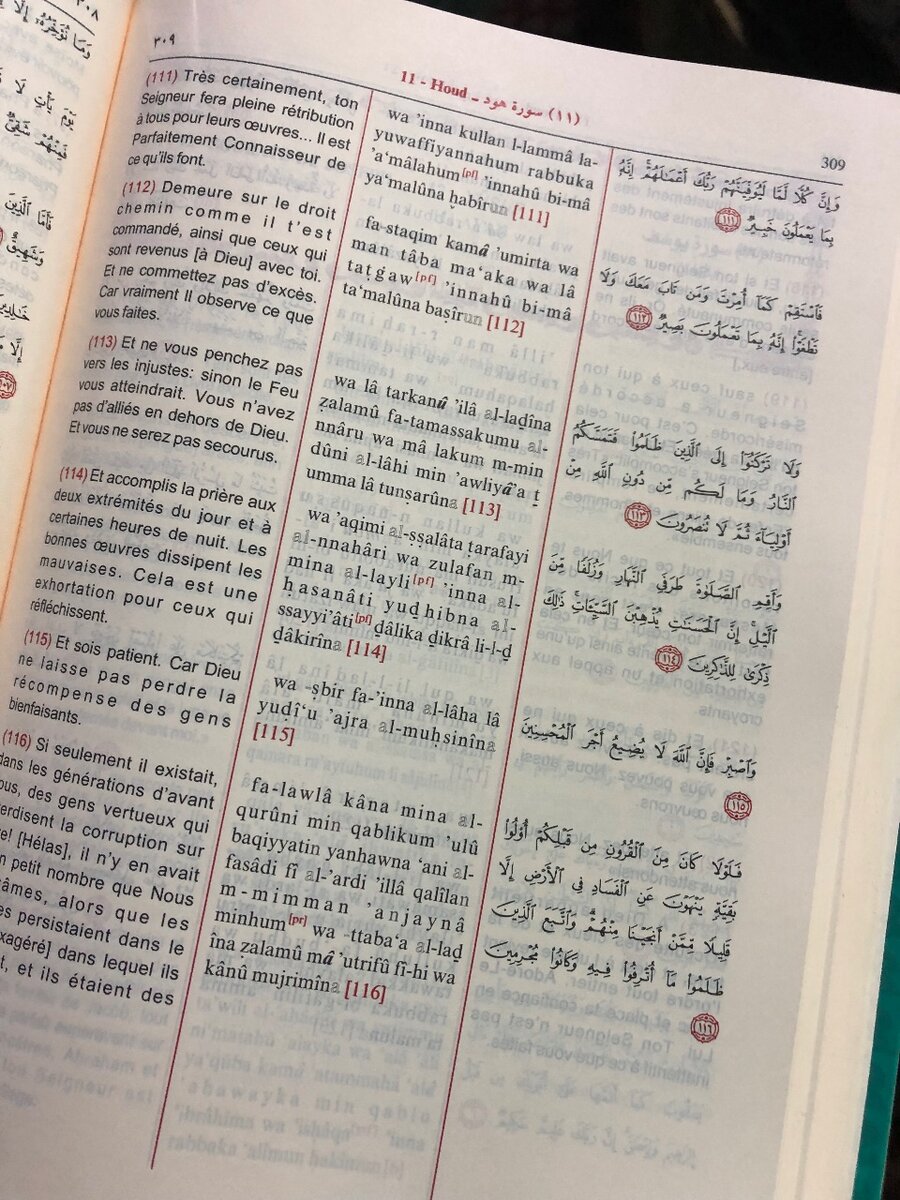 ٣٠٩
11 - Houd - سورة هود (١١)
309
(111) Très certainement, ton
Seigneur fera pleine rétribution
à tous pour leurs œuvres... Il est
Parfaitement Connaisseur de
ce qu'ils font.
(112) Demeure sur le droit
chemin comme il t'est
commandé, ainsi que ceux qui
sont revenus [à Dieu] avec toi.
Et ne commettez pas d'excès.
Car vraiment Il observe ce que
vous faites.
(113) Et ne vous penchez pas
vers les injustes: sinon le Feu
vous atteindrait. Vous n'avez
pas d'alliés en dehors de Dieu.
Et vous ne serez pas secourus.
(114) Et accomplis la prière aux
deux extrémités du jour et à
certaines heures de nuit. Les
bonnes œuvres dissipent les
mauvaises. Cela est une
exhortation pour ceux qui
réfléchissent.
(115) Et sois patient. Car Dieu
ne laisse pas perdre la
récompense des gens
bienfaisants.
(116) Si seulement il existait,
dans les générations d'avant
ous, des gens vertueux qui
erdisent la corruption sur
e! [Hélas], il n'y en avait
n petit nombre que Nous
âmes, alors que les
es persistaient dans le
xagéré] dans lequel ils
t, et ils étaient des
wa 'inna kullan l-lammâ la-
yuwaffiyannahum rabbuka
'a'mâlahum [pf] 'innahû bi-mâ
ya'malûna ḥabîrun [111]
fa-staqim kamâ 'umirta wa
man tâba ma'aka wa lâ
taṭgaw [pf] 'innahû bi-mâ
ta'malûna baṣîrun [112]
wa lâ tarkanû 'ilâ al-laḏîna
ẓalamû fa-tamassakumu al-
nnâru wa mâ lakum m-min
dûni al-lâhi min 'awliyâ'a ṯ
umma lâ tunṣarûna [113]
wa 'aqimi al-ṣṣalâta ṭarafayi
al-nnahâri wa zulafan m-
mina al-layli [pf] 'inna al-
ḥasanâti yuḏhibna al-
ssayyi'âti [pf] ḏâlika ḏikrâ li-l-ḏ
ḏâkirîna [114]
wa -ṣbir fa-'inna al-lâha lâ
yuḍî'u 'ajra al-muḥsinîna
[115]
fa-lawlâ kâna mina al-
qurûni min qablikum 'ulû
baqiyyatin yanhawna 'ani al-
fasâdi fî al-'ardi 'illâ qalîlan
m-mimman 'anjaynâ
minhum [pr] wa -ttaba'a al-laḏ
îna ẓalamû mâ 'utrifû fî-hi wa
kânû mujrimîna [116]
وَإِنَّ كُلًّا لَّمَّا لَيُوَفِّيَنَّهُمْ رَبُّكَ أَعْمَـٰلَهُمْ ۚ إِنَّهُۥ
بِمَا يَعْمَلُونَ خَبِيرٌ ١١١
فَٱسْتَقِمْ كَمَآ أُمِرْتَ وَمَن تَابَ مَعَكَ وَلَا
تَطْغَوْا۟ ۚ إِنَّهُۥ بِمَا تَعْمَلُونَ بَصِيرٌ ١١٢
وَلَا تَرْكَنُوٓا۟ إِلَى ٱلَّذِينَ ظَلَمُوا۟ فَتَمَسَّكُمُ
ٱلنَّارُ وَمَا لَكُم مِّن دُونِ ٱللَّهِ مِنْ
أَوْلِيَآءَ ثُمَّ لَا تُنصَرُونَ ١١٣
وَأَقِمِ ٱلصَّلَوٰةَ طَرَفَىِ ٱلنَّهَارِ وَزُلَفًا مِّنَ
ٱلَّيْلِ ۚ إِنَّ ٱلْحَسَنَـٰتِ يُذْهِبْنَ ٱلسَّيِّـَٔاتِ ۚ ذَٰلِكَ
ذِكْرَىٰ لِلذَّٰكِرِينَ ١١٤
وَٱصْبِرْ فَإِنَّ ٱللَّهَ لَا يُضِيعُ أَجْرَ ٱلْمُحْسِنِينَ
١١٥
فَلَوْلَا كَانَ مِنَ ٱلْقُرُونِ مِن قَبْلِكُمْ أُو۟لُوا۟
بَقِيَّةٍ يَنْهَوْنَ عَنِ ٱلْفَسَادِ فِى ٱلْأَرْضِ إِلَّا
قَلِيلًا مِّمَّنْ أَنجَيْنَا مِنْهُمْ ۗ وَٱتَّبَعَ ٱلَّذِينَ
ظَلَمُوا۟ مَآ أُتْرِفُوا۟ فِيهِ وَكَانُوا۟ مُجْرِمِينَ
١١٦